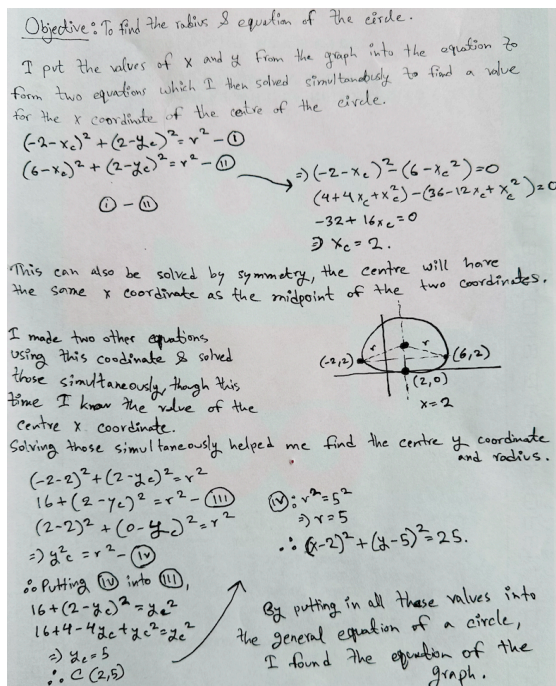 Objective: To find the radius & equation of the circle.
I put the values of x and y from the graph into the equation to
form two equations which I then solved simultaneously to find a value
for the x coordinate of the centre of the circle.
(-2-x_c)² + (2-y_c)² = r² - (i)
(6-x_c)² + (2-y_c)² = r² - (ii)
(i) - (ii)
=> (-2-x_c)² - (6-x_c²) = 0
(4+4x_c+x_c²) - (36-12x_c+x_c²) = 0
-32 + 16x_c = 0
=> x_c = 2.
This can also be solved by symmetry, the centre will have
the same x coordinate as the midpoint of the two coordinates.
I made two other equations
using this coodinate & solved
those simultaneously, though this
time I know the value of the
centre x coordinate.
r r
(-2,2) (6,2)
(2,0)
x=2
Solving those simultaneously helped me find the centre y coordinate
and radius.
(-2-2)² + (2-y_c)² = r²
16 + (2-y_c)² = r² - (iii)
(2-2)² + (0-y_c)² = r²
=> y_c² = r² - (iv)
∴ Putting (iv) into (iii),
16 + (2-y_c)² = y_c²
16+4-4y_c+y_c² = y_c²
=> y_c = 5
∴ C (2,5)
(iv): r² = 5²
=> r = 5
∴ (x-2)² + (y-5)² = 25.
By putting in all these values into
the general equation of a circle,
I found the equation of the
graph.